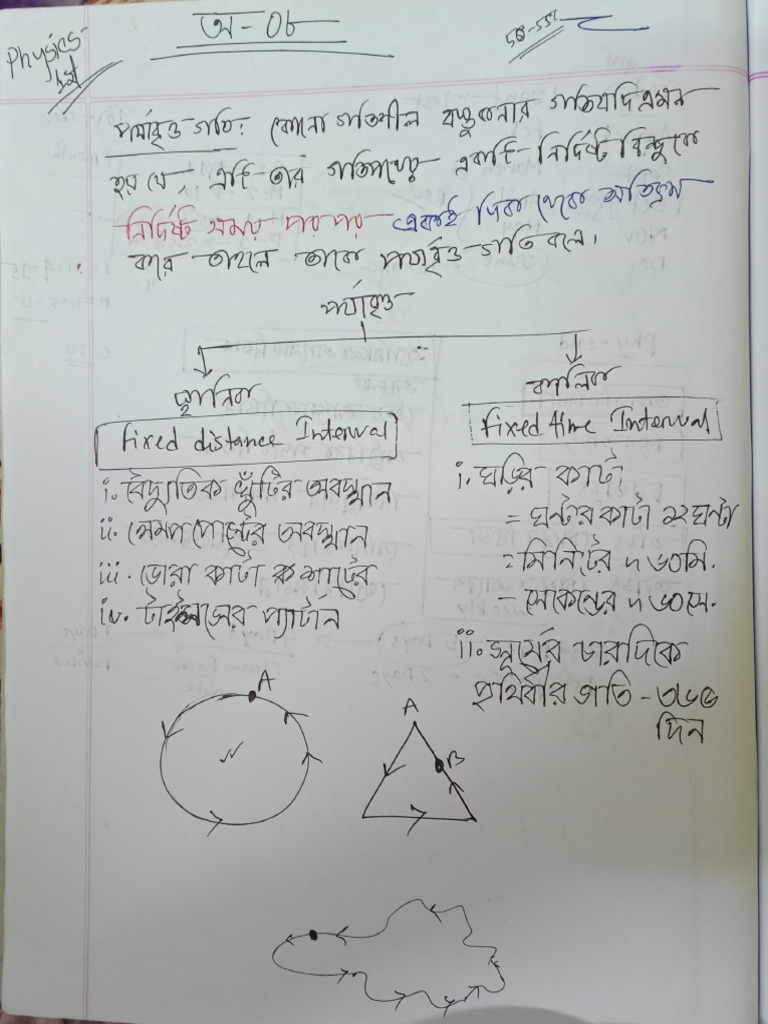 Physics-
1st
অ-০৮
পর্যাবৃত্ত গতি: কোনো গতিশীল বস্তুকনার গতি যদি এমন
হয় যে, এটি তার গতিপথের একটি নির্দিষ্ট বিন্দুকে
নির্দিষ্ট সময় পর পর একই দিক থেকে অতিক্রম
করে তাহলে তাকে পর্যাবৃত্ত গতি বলে।
পর্যাবৃত্ত
স্থানিক
কালিক
Fixed distance Interval
Fixed time Interval
i. বৈদ্যুতিক খুঁটির অবস্থান
ii. লেম্প পোস্টের অবস্থান
iii. ডোরা কাটা শার্টের
iv. টাইলসের প্যাটার্ন
i. ঘড়ির কাটা
= ঘন্টার কাটা ১২ ঘন্টা
= মিনিটের ৬০মি.
- সেকেন্ডের ৬০সে.
ii. সূর্যের চারদিকে
পৃথিবীর গতি - ৩৬৫
দিন
A
A
B